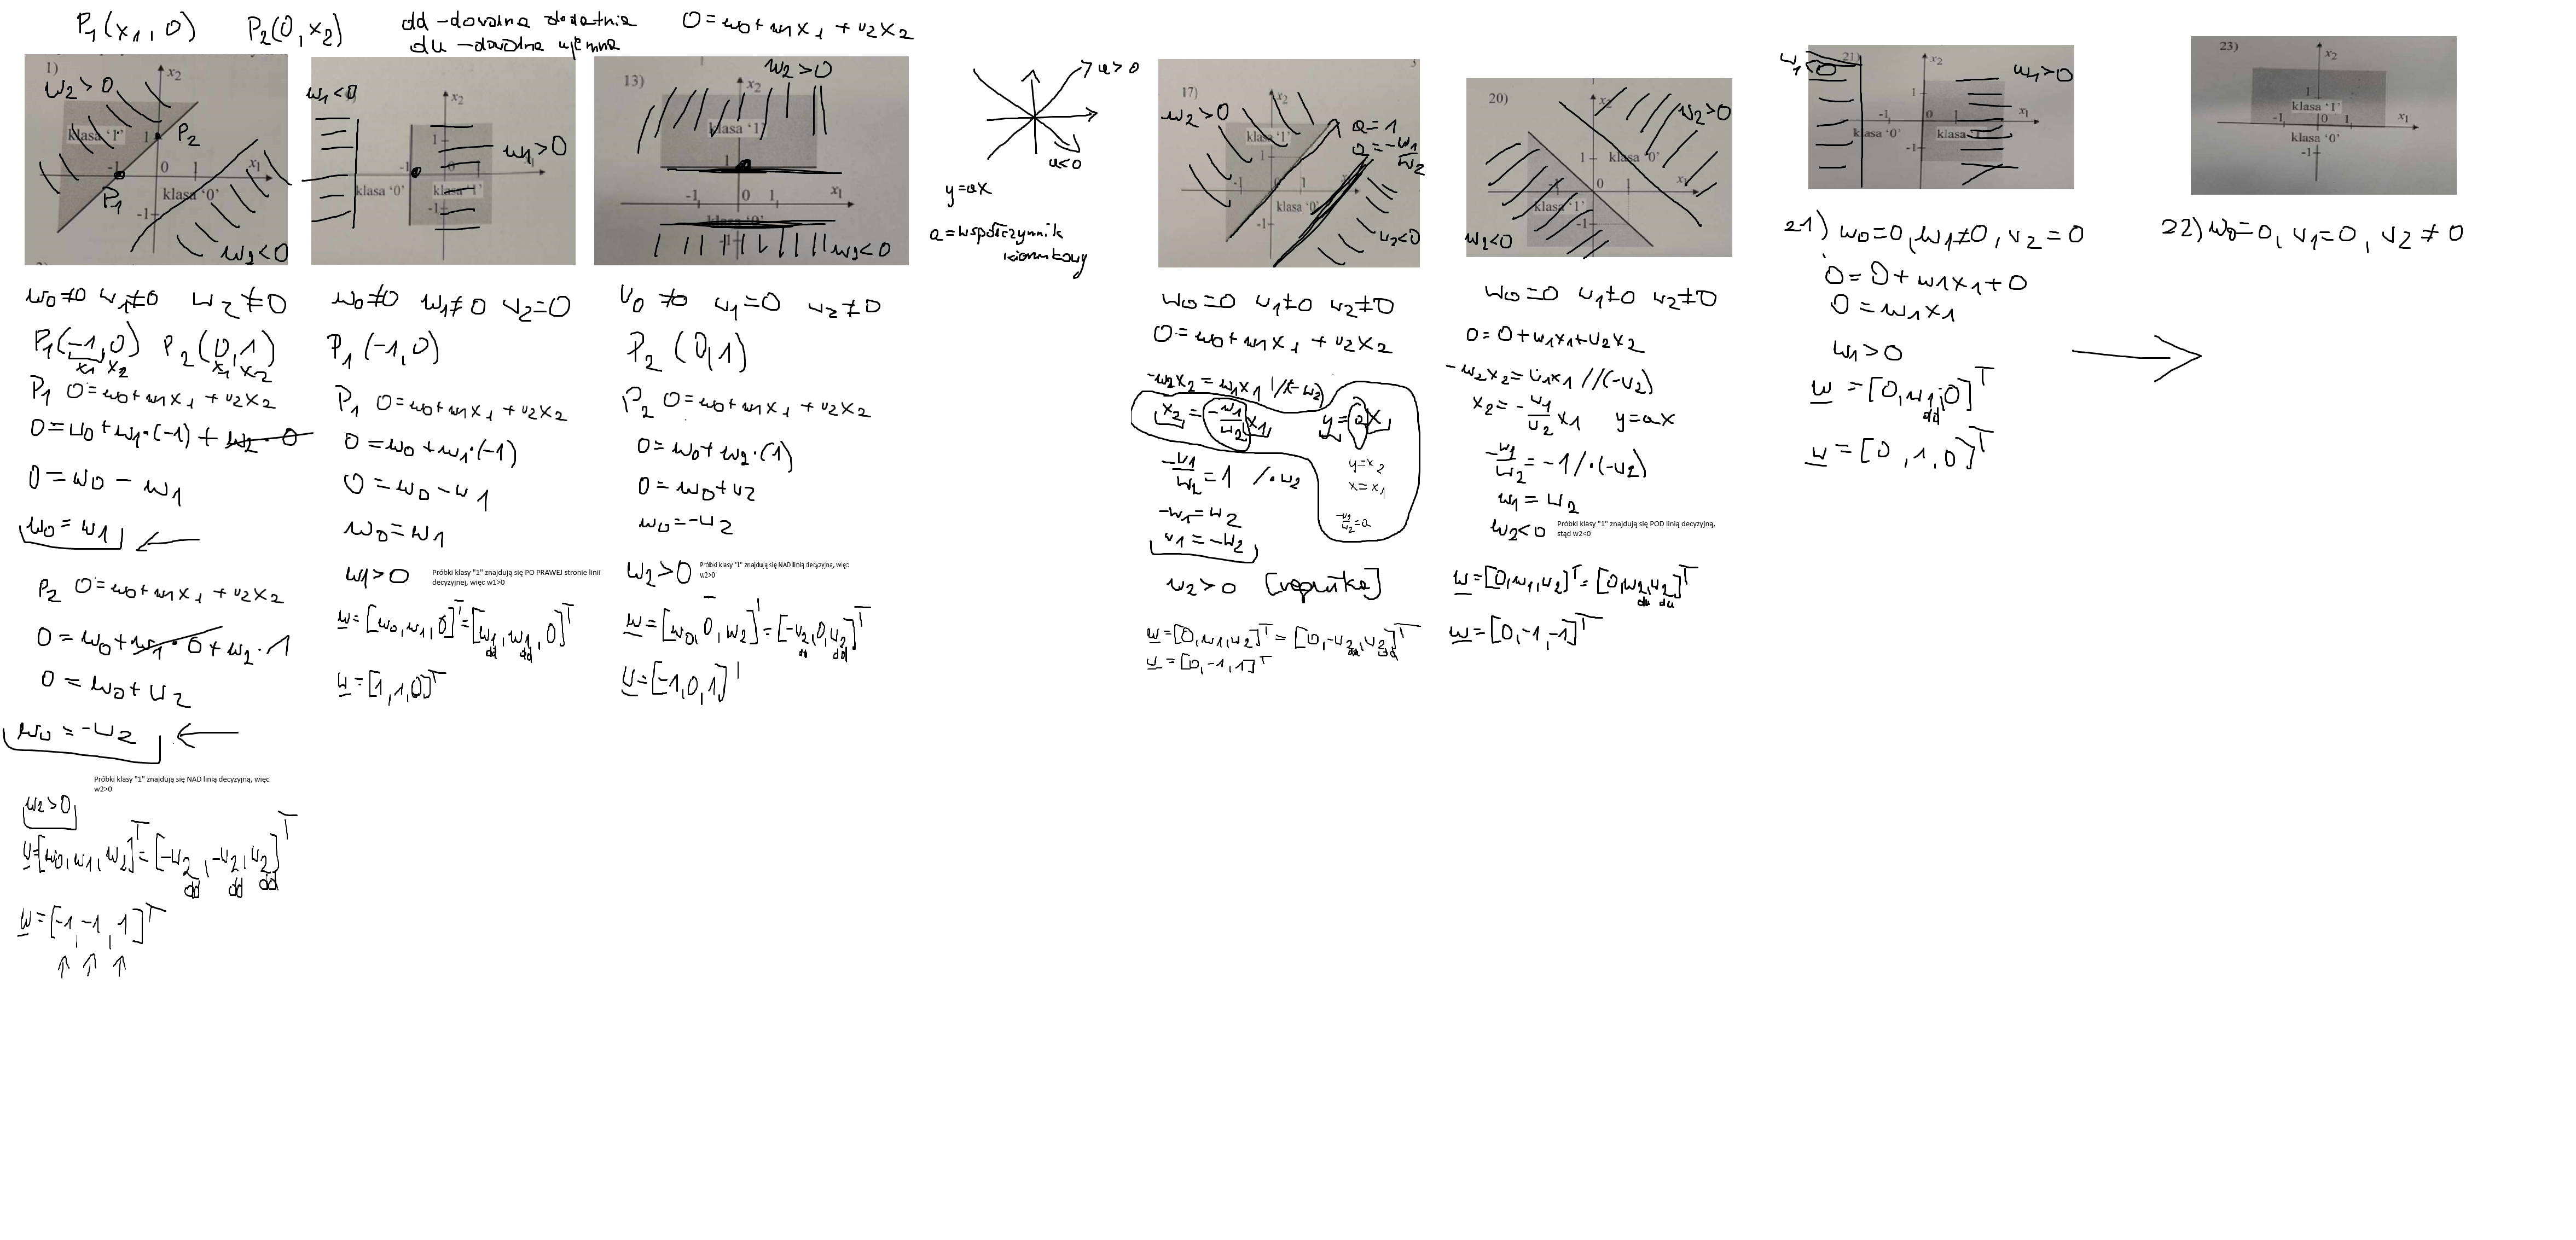 P1(x1, 0) P2(0, x2)
dd - dowolna dodatnia
du - dowolna ujemna
0 = w0 + w1x1 + w2x2
1)
x2
w2 > 0
klasa '1'
1
P2
-1
0
1
x1
P1
klasa '0'
-1
w2 < 0
w0 ≠ 0 w1 ≠ 0 w2 ≠ 0
P1(-1, 0) P2(0, 1)
x1 x2 x1 x2
P1 0 = w0 + w1x1 + w2x2
0 = w0 + w1·(-1) + w2·0
0 = w0 - w1
w0 = w1
P2 0 = w0 + w1x1 + w2x2
0 = w0 + w1·0 + w2·1
0 = w0 + w2
w0 = -w2
Próbki klasy "1" znajdują się NAD linią decyzyjną, więc
w2>0
w2 > 0
w = [w0, w1, w2]T = [-w2, -w2, w2]T
dd dd dd
w = [-1, -1, 1]T
w1 < 0
x2
1
w1 > 0
-1
0
klasa '0'
klasa '1'
-1
w0 ≠ 0 w1 ≠ 0 w2 = 0
P1(-1, 0)
P1 0 = w0 + w1x1 + w2x2
0 = w0 + w1·(-1)
0 = w0 - w1
w0 = w1
w1 > 0
Próbki klasy "1" znajdują się PO PRAWEJ stronie linii
decyzyjnej, więc w1>0
w = [w0, w1, 0]T = [w1, w1, 0]T
dd dd
w = [1, 1, 0]T
13)
w2 > 0
x2
klasa '1'
1
-1
0
1
x1
klasa '0'
-1
w2 < 0
w0 ≠ 0 w1 = 0 w2 ≠ 0
P2(0, 1)
P2 0 = w0 + w1x1 + w2x2
0 = w0 + w2·(1)
0 = w0 + w2
w0 = -w2
w2 > 0
Próbki klasy "1" znajdują się NAD linią decyzyjną, więc
w2>0
w = [w0, 0, w2]T = [-w2, 0, w2]T
dd dd
w = [-1, 0, 1]T
a > 0
a < 0
y = ax
a = współczynnik
kierunkowy
17)
3
x2
w2 > 0
klasa '1'
1
a = 1
a = -w1/w2
-1
1
klasa '0'
-1
w2 < 0
w0 = 0 w1 ≠ 0 w2 ≠ 0
0 = w0 + w1x1 + w2x2
-w2x2 = w1x1 //(-w2)
x2 = -w1/w2 x1 y = ax
y = x2
x = x1
-w1/w2 = a
-w1/w2 = 1 /·w2
-w1 = w2
w1 = -w2
w2 > 0
w = [0, w1, w2]T = [0, -w2, w2]T
dd dd
w = [0, -1, 1]T
20)
x2
w2 > 0
1
klasa '0'
-1
0
1
x1
klasa '1'
-1
w2 < 0
w0 = 0 w1 ≠ 0 w2 ≠ 0
0 = 0 + w1x1 + w2x2
-w2x2 = w1x1 //(-w2)
x2 = -w1/w2 x1 y = ax
-w1/w2 = -1 /·(-w2)
w1 = w2
w2 < 0
Próbki klasy "1" znajdują się POD linią decyzyjną,
stąd w2<0
w = [0, w1, w2]T = [0, w2, w2]T
du du
w = [0, -1, -1]T
w1 < 0
21)
x2
w1 > 0
1
-1
0
1
x1
klasa '0'
klasa '1'
-1
21) w0 = 0, w1 ≠ 0, w2 = 0
0 = 0 + w1x1 + 0
0 = w1x1
w1 > 0
w = [0, w1, 0]T
dd
w = [0, 1, 0]T
23)
x2
1
klasa '1'
-1
0
1
x1
klasa '0'
-1
22) w0 = 0, w1 = 0, w2 ≠ 0